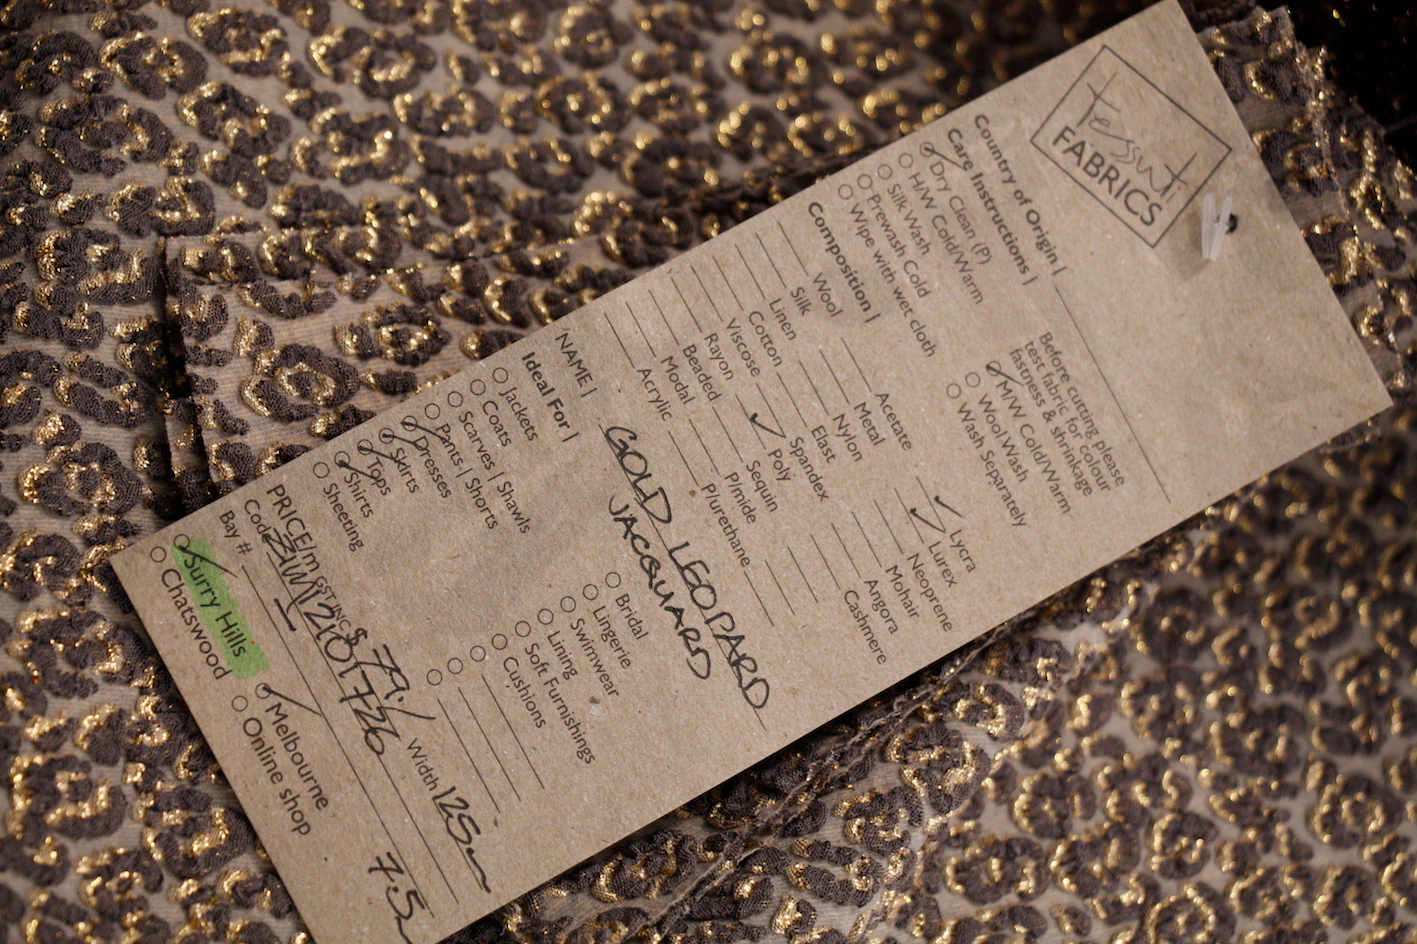 tessuti
FABRICS
Country of Origin |
Care Instructions |
Dry Clean (P)
H/W Cold/Warm
Silk Wash
Prewash Cold
Wipe with wet cloth
Before cutting please
test fabric for colour
fastness & shrinkage
M/W Cold/Warm
Wool Wash
Wash Separately
Composition |
Wool
Silk
Linen
Cotton
Viscose
Rayon
Beaded
Modal
Acrylic
Acetate
Metal
Nylon
Elast
Spandex
✓ Poly
Sequin
P/mide
P/urethane
✓ Lycra
✓ Lurex
Neoprene
Mohair
Angora
Cashmere
NAME | GOLD LEOPARD
JACQUARD
Ideal For |
Jackets
Coats
Scarves | Shawls
Pants | Shorts
Dresses
Skirts
Tops
Shirts
Sheeting
Bridal
Lingerie
Swimwear
Lining
Soft Furnishings
Cushions
PRICE/m GST INC $79./ Width 125
Code
Bay #
7.5
Surry Hills
Chatswood
Melbourne
Online shop